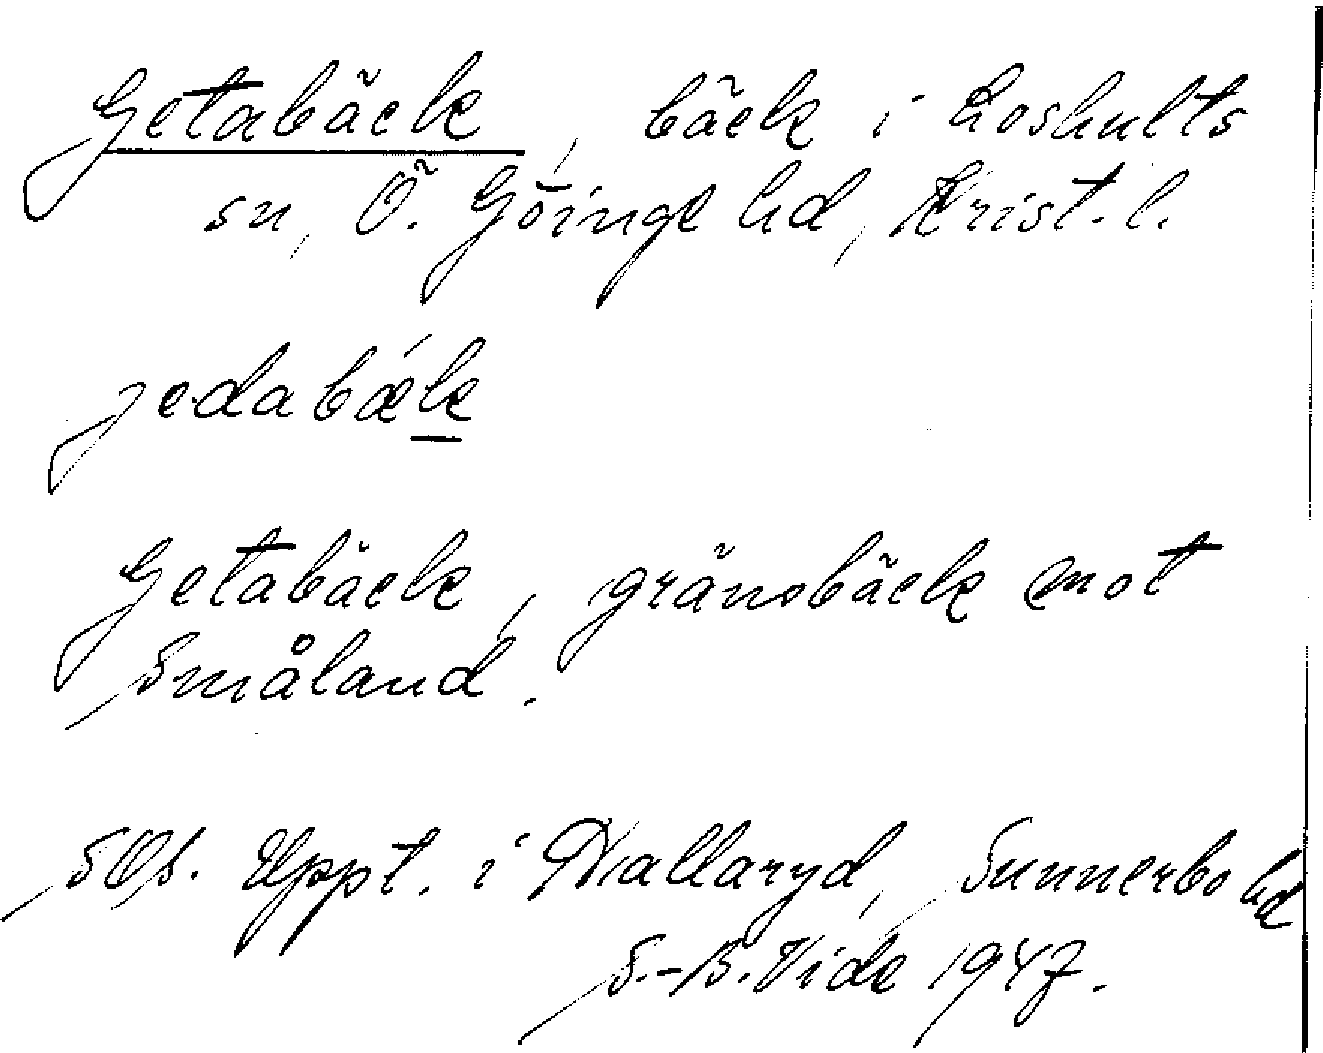 Getabäck, bäck i Loshults
sn, Ö. Göinge hd, Krist. l.
jedabǽk
Getabäck, gränsbäck mot
Småland.
Obs. Uppt. i Hallaryd, Sunnerbo hd
S.-B. Vide 1947.